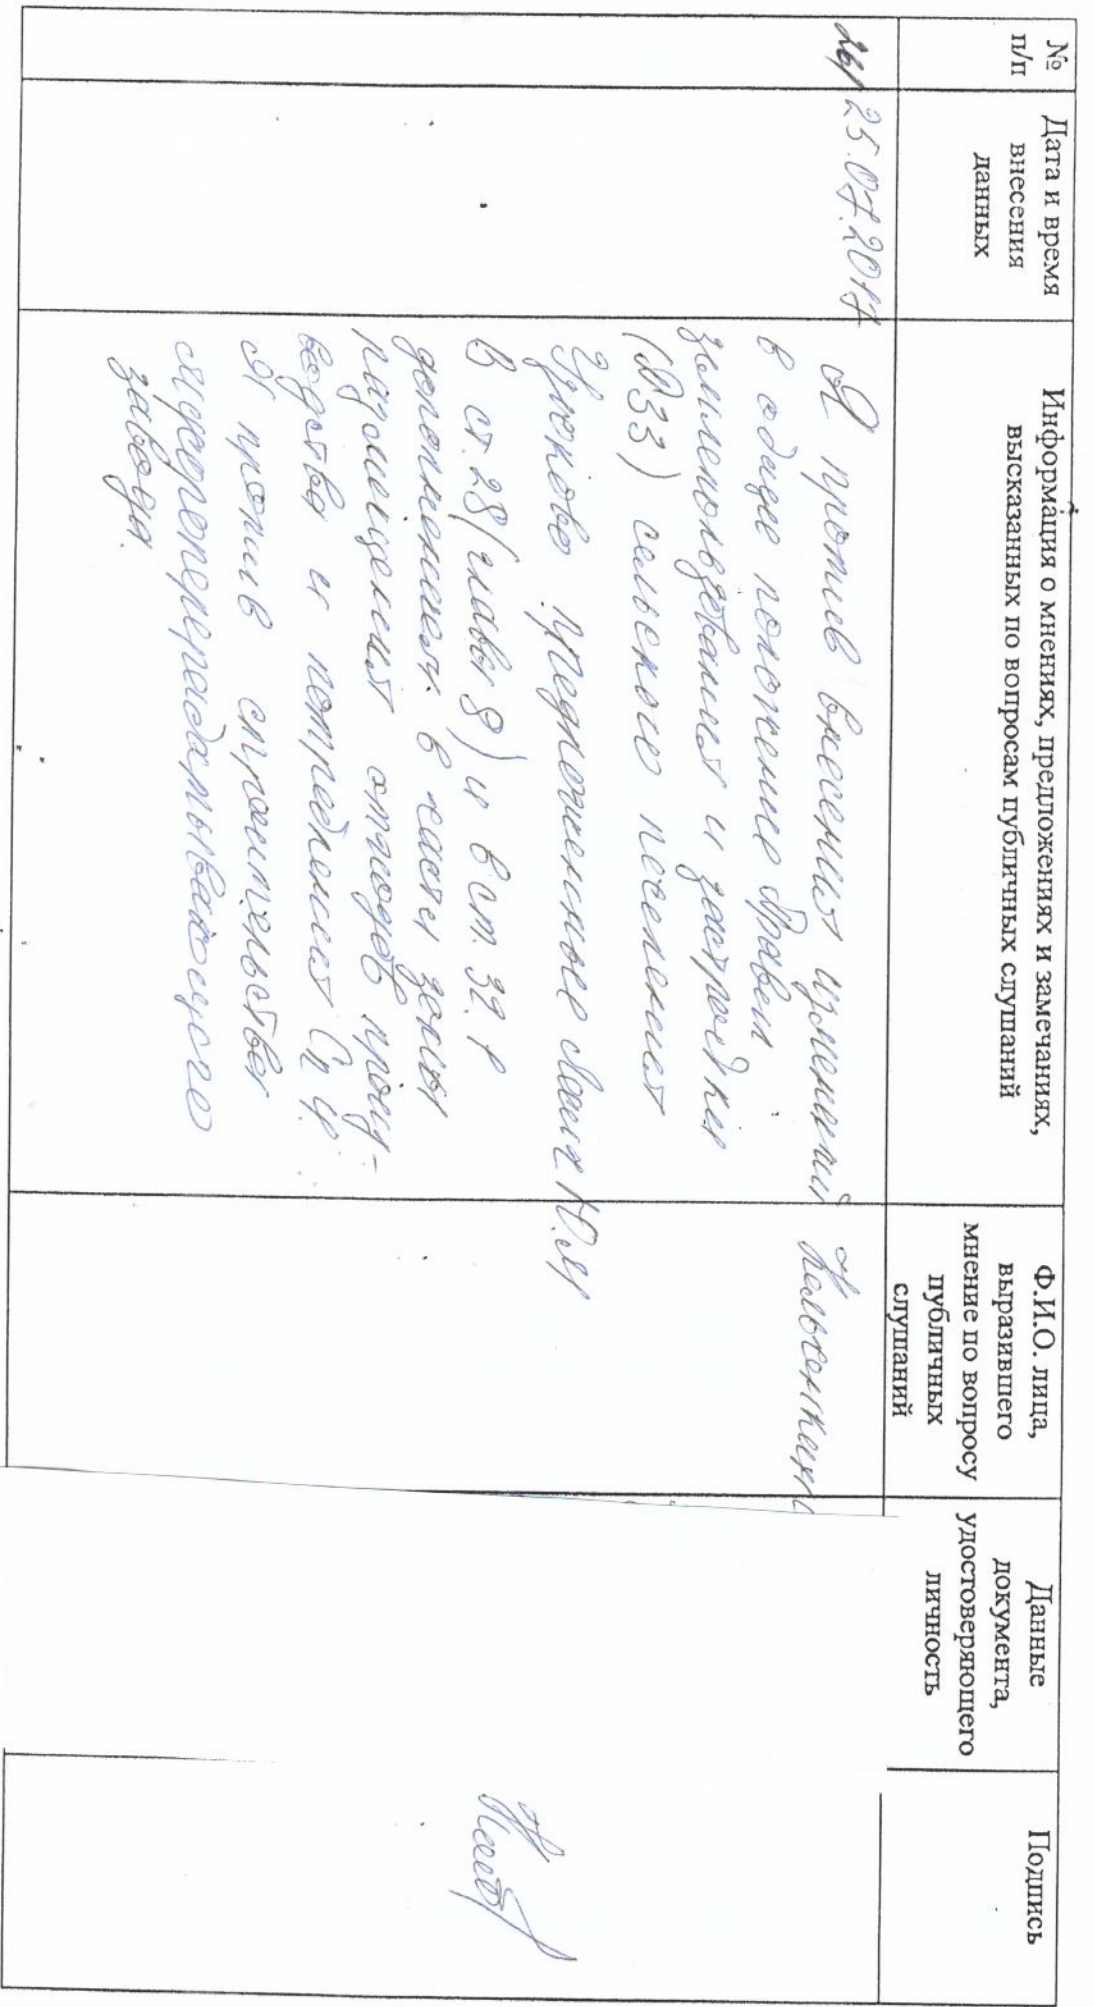 №
п/п
Дата и время
внесения
данных
Информация о мнениях, предложениях и замечаниях,
высказанных по вопросам публичных слушаний
Ф.И.О. лица,
выразившего
мнение по вопросу
публичных
слушаний
Данные
документа,
удостоверяющего
личность
Подпись
25.07.2017
Я против внесения изменений
в общее положение Правил
землепользования и застройки
(ПЗЗ) сельского поселения
предложенные Ю.М
В ст. 28 (главы 8) и в ст. 32.1
дополнения в части зоны
размещения отходов произ-
водства и потребления
Я против строительства
мусороперерабатывающего
завода.